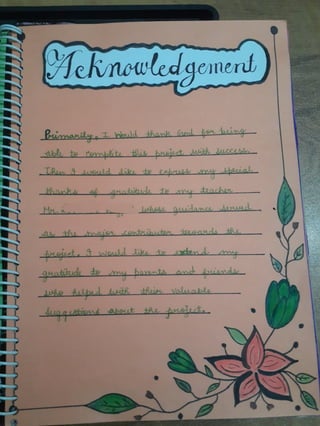 Acknowledgement
Primarily, I would thank God for being
able to complete this project with success.
Then I would like to express my special
thanks of gratitude to my teacher
Mr. whose guidance served
as the major contributor towards the
project. I would like to extend my
gratitude to my parents and friends
who helped with their valuable
suggestions about the project.